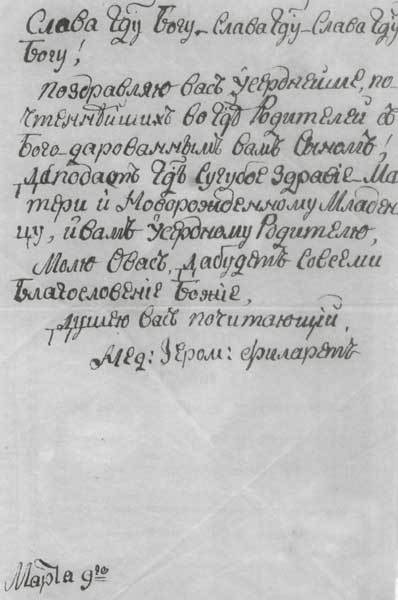 Слава Гду Богу, Слава Гду, Слава Гду
Богу!
Поздравляю васъ Усерднейше, по-
чтеннѣйшихъ во Гдѣ Родителей съ
Бого-дарованнымъ вамъ Сыномъ!
Да подастъ Гдь Сугубое Здравіе Ма-
тери и Новорожденному Младен-
цу, и вамъ Усердному Родителю,
Молю О васъ, да будетъ Со всеми
Благословеніе Божіе,
душею васъ почитающій,
Мед: Іером: Филаретъ
Марта 9го